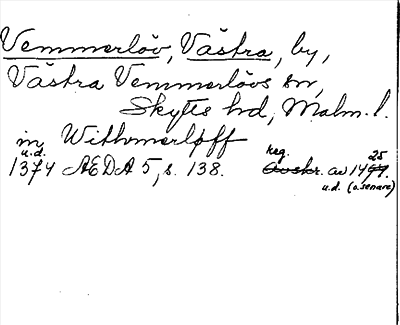 Vemmerlöv, Västra, by,
Västra Vemmerlövs sn,
Skytts hd, Malm. l.
in Withomerløff
u.d.
1374 AEDA 5, s. 138. reg. av 1425
u.d. (o. senare)